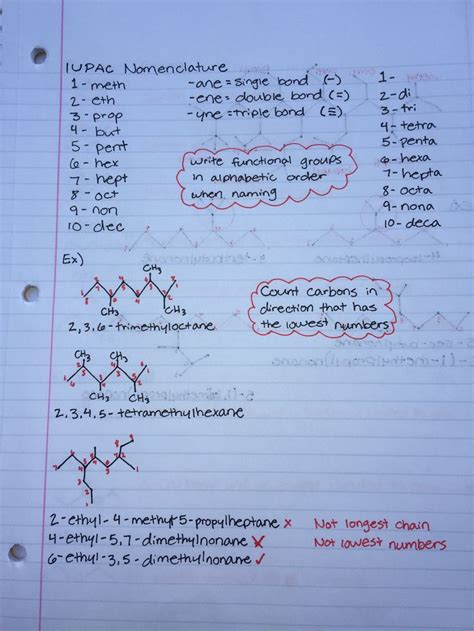 IUPAC Nomenclature
1 - meth
2 - eth
3 - prop
4 - but
5 - pent
6 - hex
7 - hept
8 - oct
9 - non
10 - dec
-ane = single bond (-)
-ene = double bond (=)
-yne = triple bond (≡)
Write functional groups
in alphabetic order
when naming
1-
2-di
3-tri
4-tetra
5-penta
6-hexa
7-hepta
8-octa
9-nona
10-deca
Ex)
CH3
CH3 CH3
2,3,6-trimethyloctane
Count carbons in
direction that has
the lowest numbers
CH3 CH3
CH3 CH3
2,3,4,5-tetramethylhexane
2-ethyl-4-methyl-5-propylheptane x Not longest chain
4-ethyl-5,7-dimethylnonane X Not lowest numbers
6-ethyl-3,5-dimethylnonane ✓